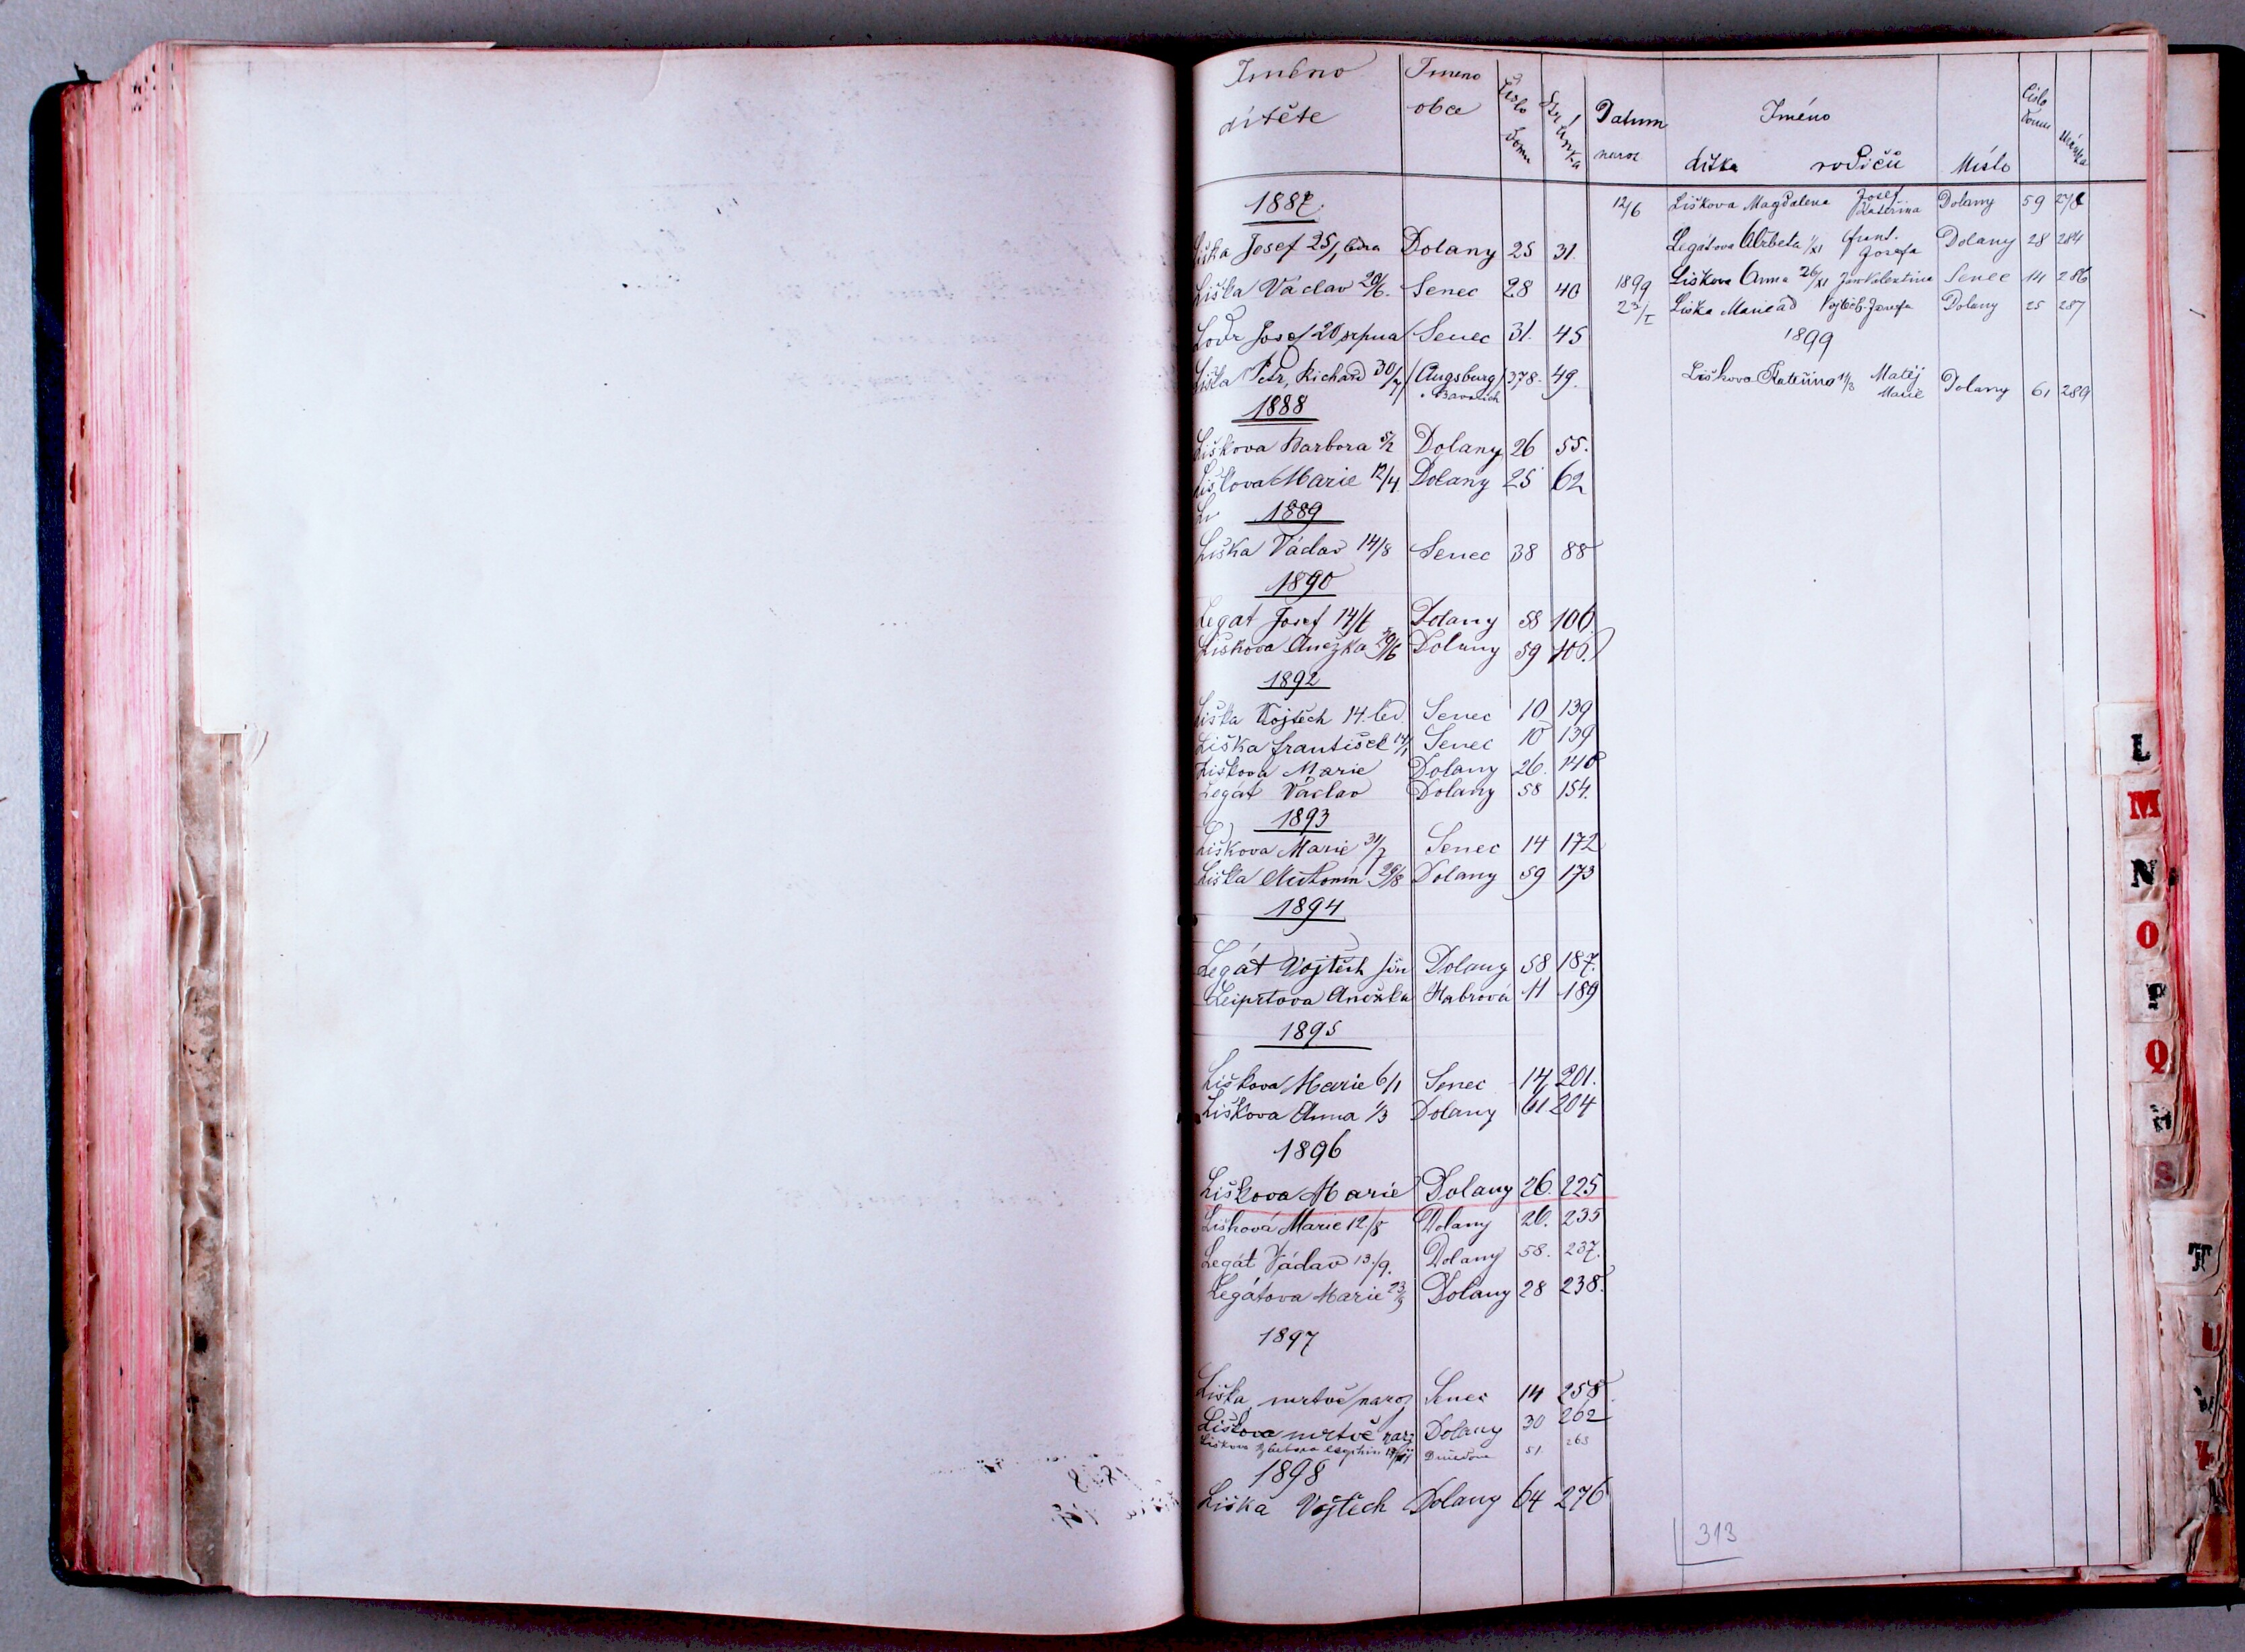 Jméno dítěte | Jmeno obce | Číslo domu | Stránka
1887.
Liška Josef 25/1 ledna | Dolany | 25 | 31.
Liška Václav 29/6. | Senec | 28 | 40
Josef 20 srpna | Senec | 31. | 45
Liška Petr, Richard 30/ | (Augsburg) | 378. | 49.
v Bavořích
1888
Liškova Barbora 5/2 | Dolany | 26 | 55.
Liškova Marie 12/4. | Dolany | 25 | 62
1889
Liška Václav 14/8 | Senec | 38 | 88
1890
Legat Josef 14/ | Dolany | 58 | 106
Liškova Anežka 29/6 | Dolany | 59 | 106.
1892
Liška Vojtěch 14. led. | Senec | 10 | 139
Liška František 14/1 | Senec | 10 | 139
Liškova Marie | Dolany | 26. | 140
Legát Václav | Dolany | 58 | 154.
1893
Liškova Marie 31/7 | Senec | 14 | 172
Liška Antonín 29/8 | Dolany | 59 | 173
1894
Legát Vojtěch | Dolany | 58 | 187.
Leiprtova Anežka | Habrová | 11 | 189
1895
Liškova Marie 6/1 | Senec | 14 | 201.
Liškova Anna 1/3 | Dolany | 61 | 204
1896
Liškova Marie | Dolany | 26. | 225
Lišková Marie 12/8 | Dolany | 26. | 235
Legát Václav 13/9. | Dolany | 58. | 237.
Legátova Marie 23/9 | Dolany | 28 | 238.
1897
Liška mrtvě naroz | Senec | 14 | 258
Liškova mrtvě nar | Dolany | 30 | 262
Liškova | 51. | 263
1898
Liška Vojtěch | Dolany | 64 | 276
Datum naroz | Jméno dítka rodičů | Místo | Číslo domu | Stránka
12/6 | Liškova Magdalena | Josef Kateřina | Dolany | 59 | 278
Legátova Alžběta 1/XI | Frant. Josefa | Dolany | 28 | 284
1899 | Liškova Anna 26/XI | Jan Valentina | Senec | 14 | 286
23/I | Liška | Vojtěch Josefa | Dolany | 25 | 287
1899
Liškova Kateřina 11/3 | Matěj Marie | Dolany | 61 | 289
313
L
M
N
O
P
Q
R
S
T
U
V